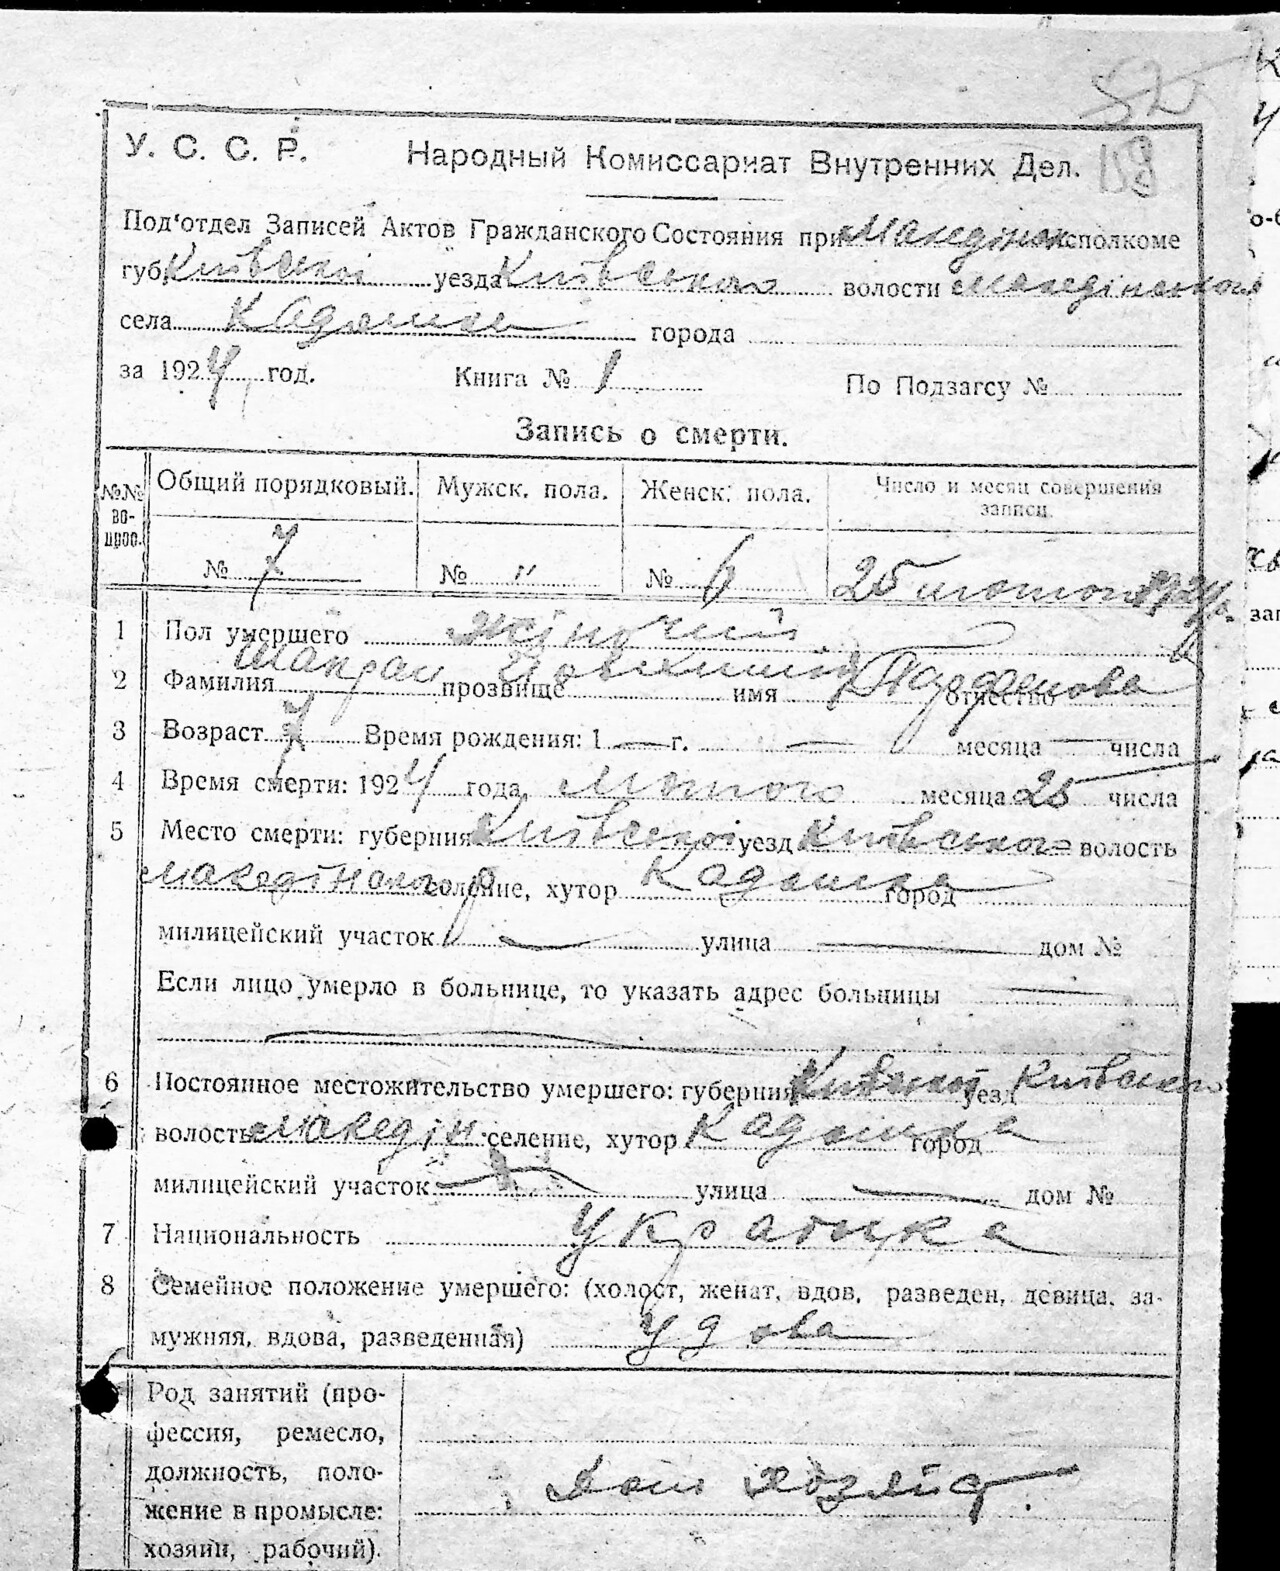 52
118
У. С. С. Р. Народный Комиссариат Внутренних Дел.
Под'отдел Записей Актов Гражданского Состояния при Македінск исполкоме
губ. Київськоі уезда Київського волости Македінського
села Кадомка города
за 1924 год. Книга № 1 По Подзагсу №
Запись о смерти.
№№ вопрос. Общий порядковый. Мужск. пола. Женск. пола. Число и месяц совершения записи.
№ 7 № " № 6 25 лютого 1924 р.
1 Пол умершего жіночий
2 Фамилия прозвище имя отчество
3 Возраст Время рождения: 1 — г. — месяца — числа
4 Время смерти: 1924 года Лютого месяца 25 числа
5 Место смерти: губерния Київськоі уезд Київського волость
Македінського селение, хутор Кадомка город
милицейский участок — улица — дом №
Если лицо умерло в больнице, то указать адрес больницы —
6 Постоянное местожительство умершего: губерния Київської уезд Київського
волость Македін селение, хутор Кадомка город
милицейский участок — улица — дом №
7 Национальность Українка
8 Семейное положение умершего: (холост, женат, вдов, разведен, девица, за-
мужняя, вдова, разведенная) Удова
Род занятий (про-
фессия, ремесло,
должность, поло-
жение в промысле:
хозяин, рабочий).